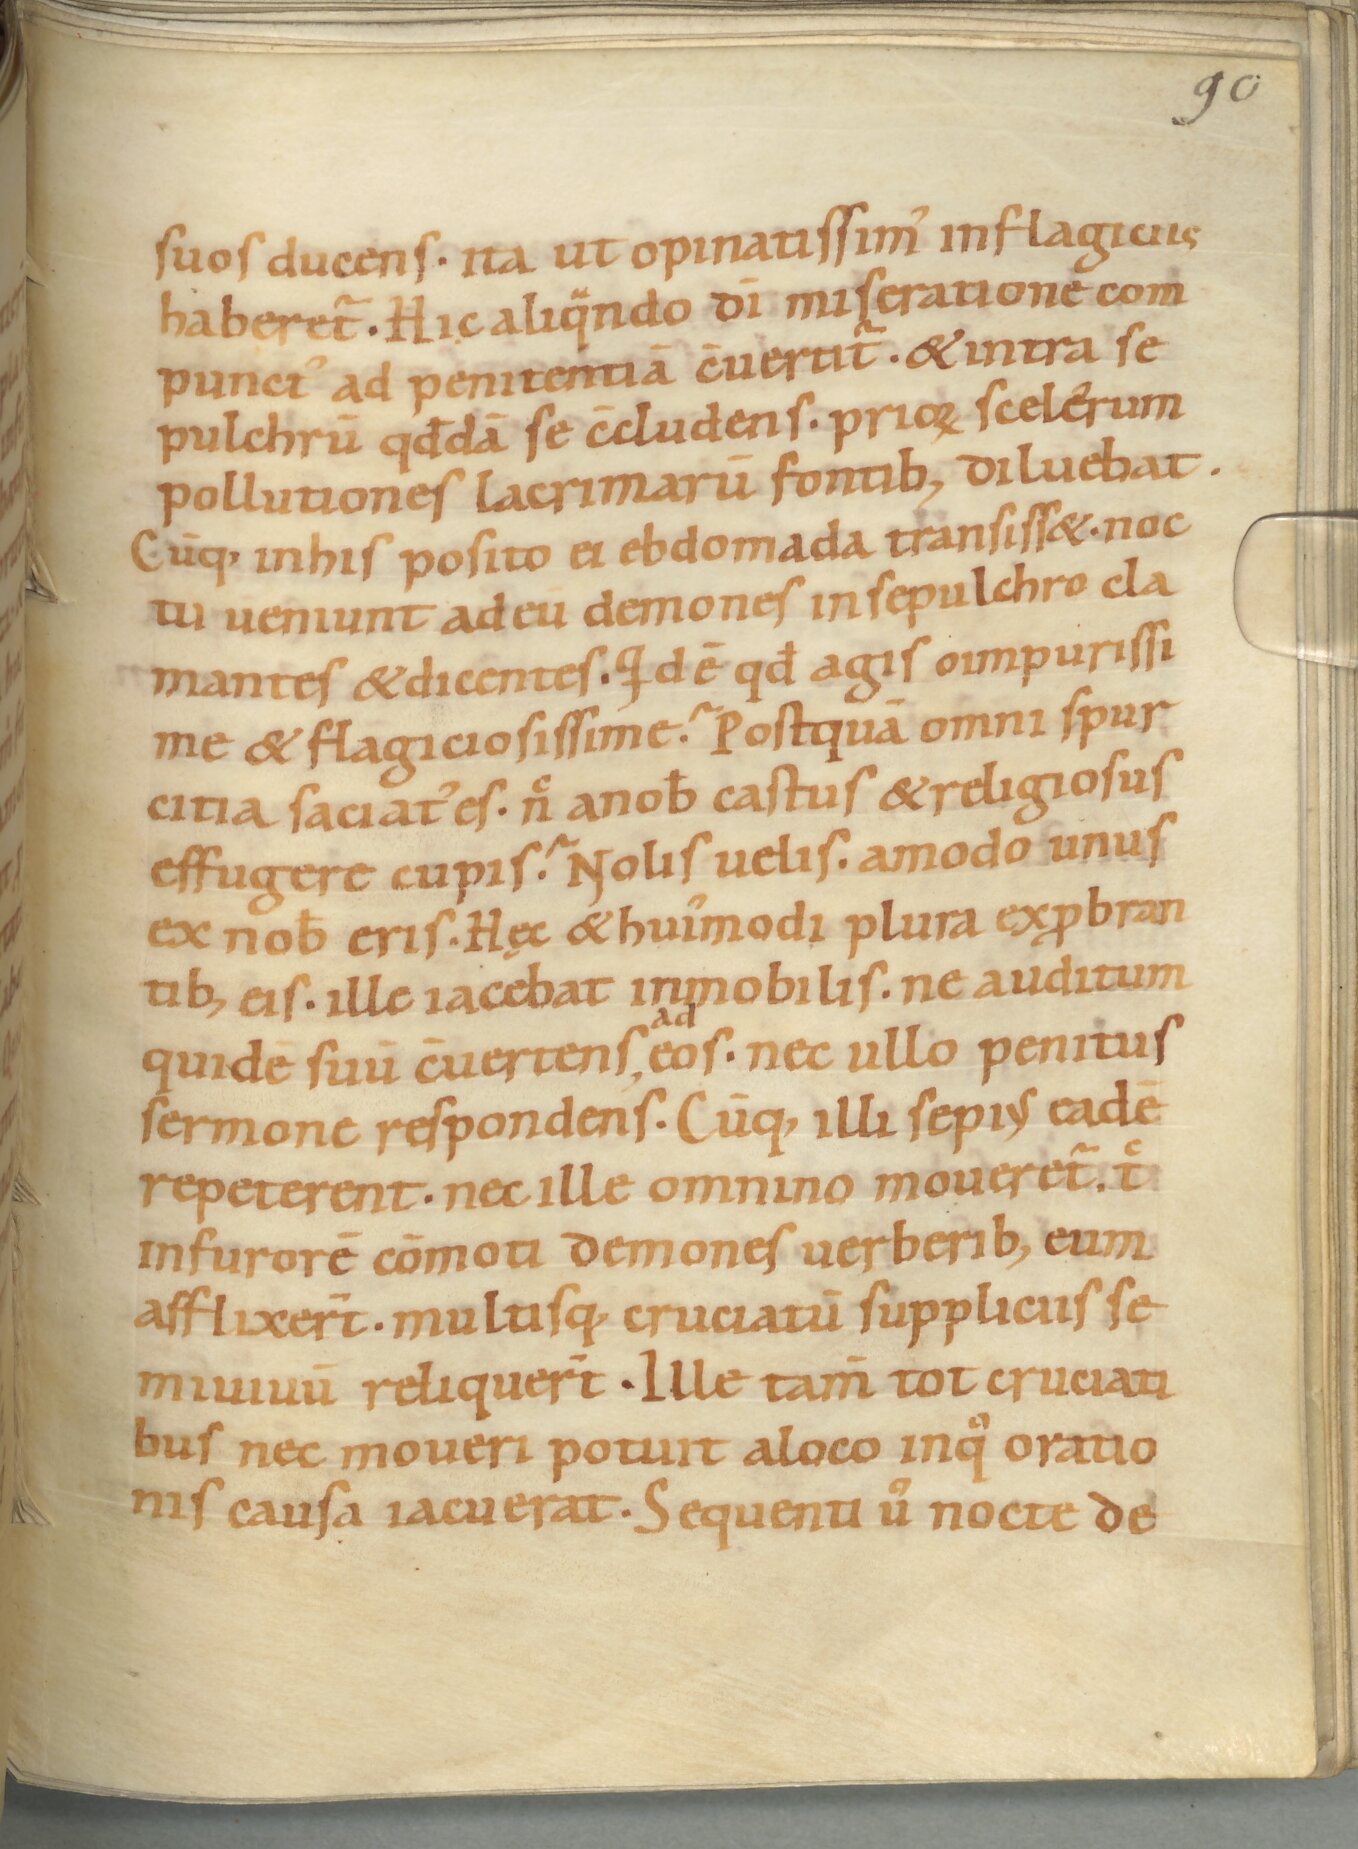 90
suos ducens. ita ut opinatissim᾽ inflagiciis
haberet᷑. Hic aliqͣndo dī miseratione com
punct᾽ ad penitentiā c̄uertit᷑. & intra se
pulchrū qđdā se c̄cludens. prioꝝ scelerum
pollutiones lacrimarū fontib; diluebat.
Cūq; inhis posito ei ebdomada transiss&. noc
tu ueniunt adeū demones insepulchro cla
mantes & dicentes. Qͥdē qđ agis oimpurissi
me & flagiciosissime? Postquā omni spur
citia saciat᾽es. n̊c anoƀ castus & religiosus
effugere cupis? Nolis uelis. amodo unus
ex noƀ eris. Hęc & hui᾽modi plura exꝓbran
tib; eis. ille iacebat inmobilis. ne auditum
quidē suū c̄uertens, ad eos. nec ullo penitus
sermone respondens. Cūq; illi sepius eadē
repeterent. nec ille omnino moueret᷑. tͨ
infurorē cōmoti demones uerberib; eum
afflixer̄t. multisq; cruciatū suppliciis se
miuiuū reliquer̄t. Ille tam̄ tot cruciati
bus nec moueri potuit aloco inqͦ oratio
nis causa iacuerat. Sequenti uͦ nocte de